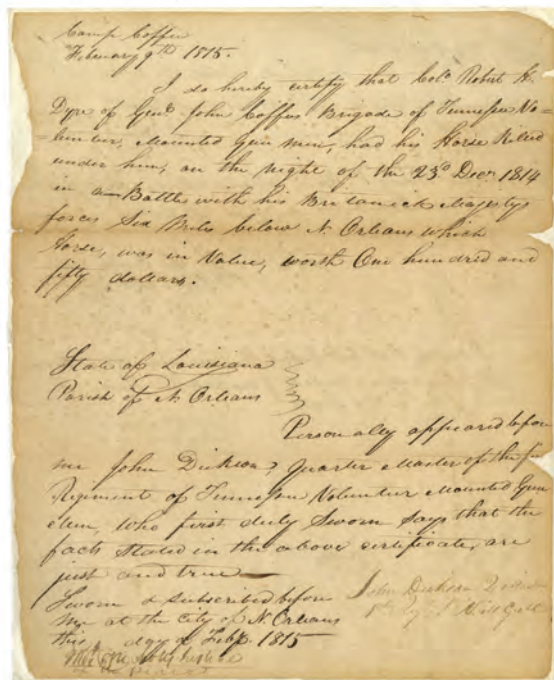 Camp Coffee
February 9th 1815.
I do hereby certify that Colo. Robert H.
Dyre of Genl. John Coffees Brigade of Tennessee Vo-
-lunteer, Mounted Gun men, had his Horse Killed
under him, on the night of the 23d Decr. 1814
in a Battle with his Britanick Majestys
forces Six Miles below N. Orleans which
Horse, was in Value, worth One hundred and
fifty dollars.
State of Louisiana
Parish of N. Orleans
Personally appeared before
me John Dickson, Quarter Master of the
Regiment of Tennessee Volunteer Mounted Gun
Men, Who first duly Sworn Says that the
facts Stated in the above certificate, are
just and true
Sworn & Subscribed before
me at the City of N. Orleans
this day of Feby. 1815
John Dickson